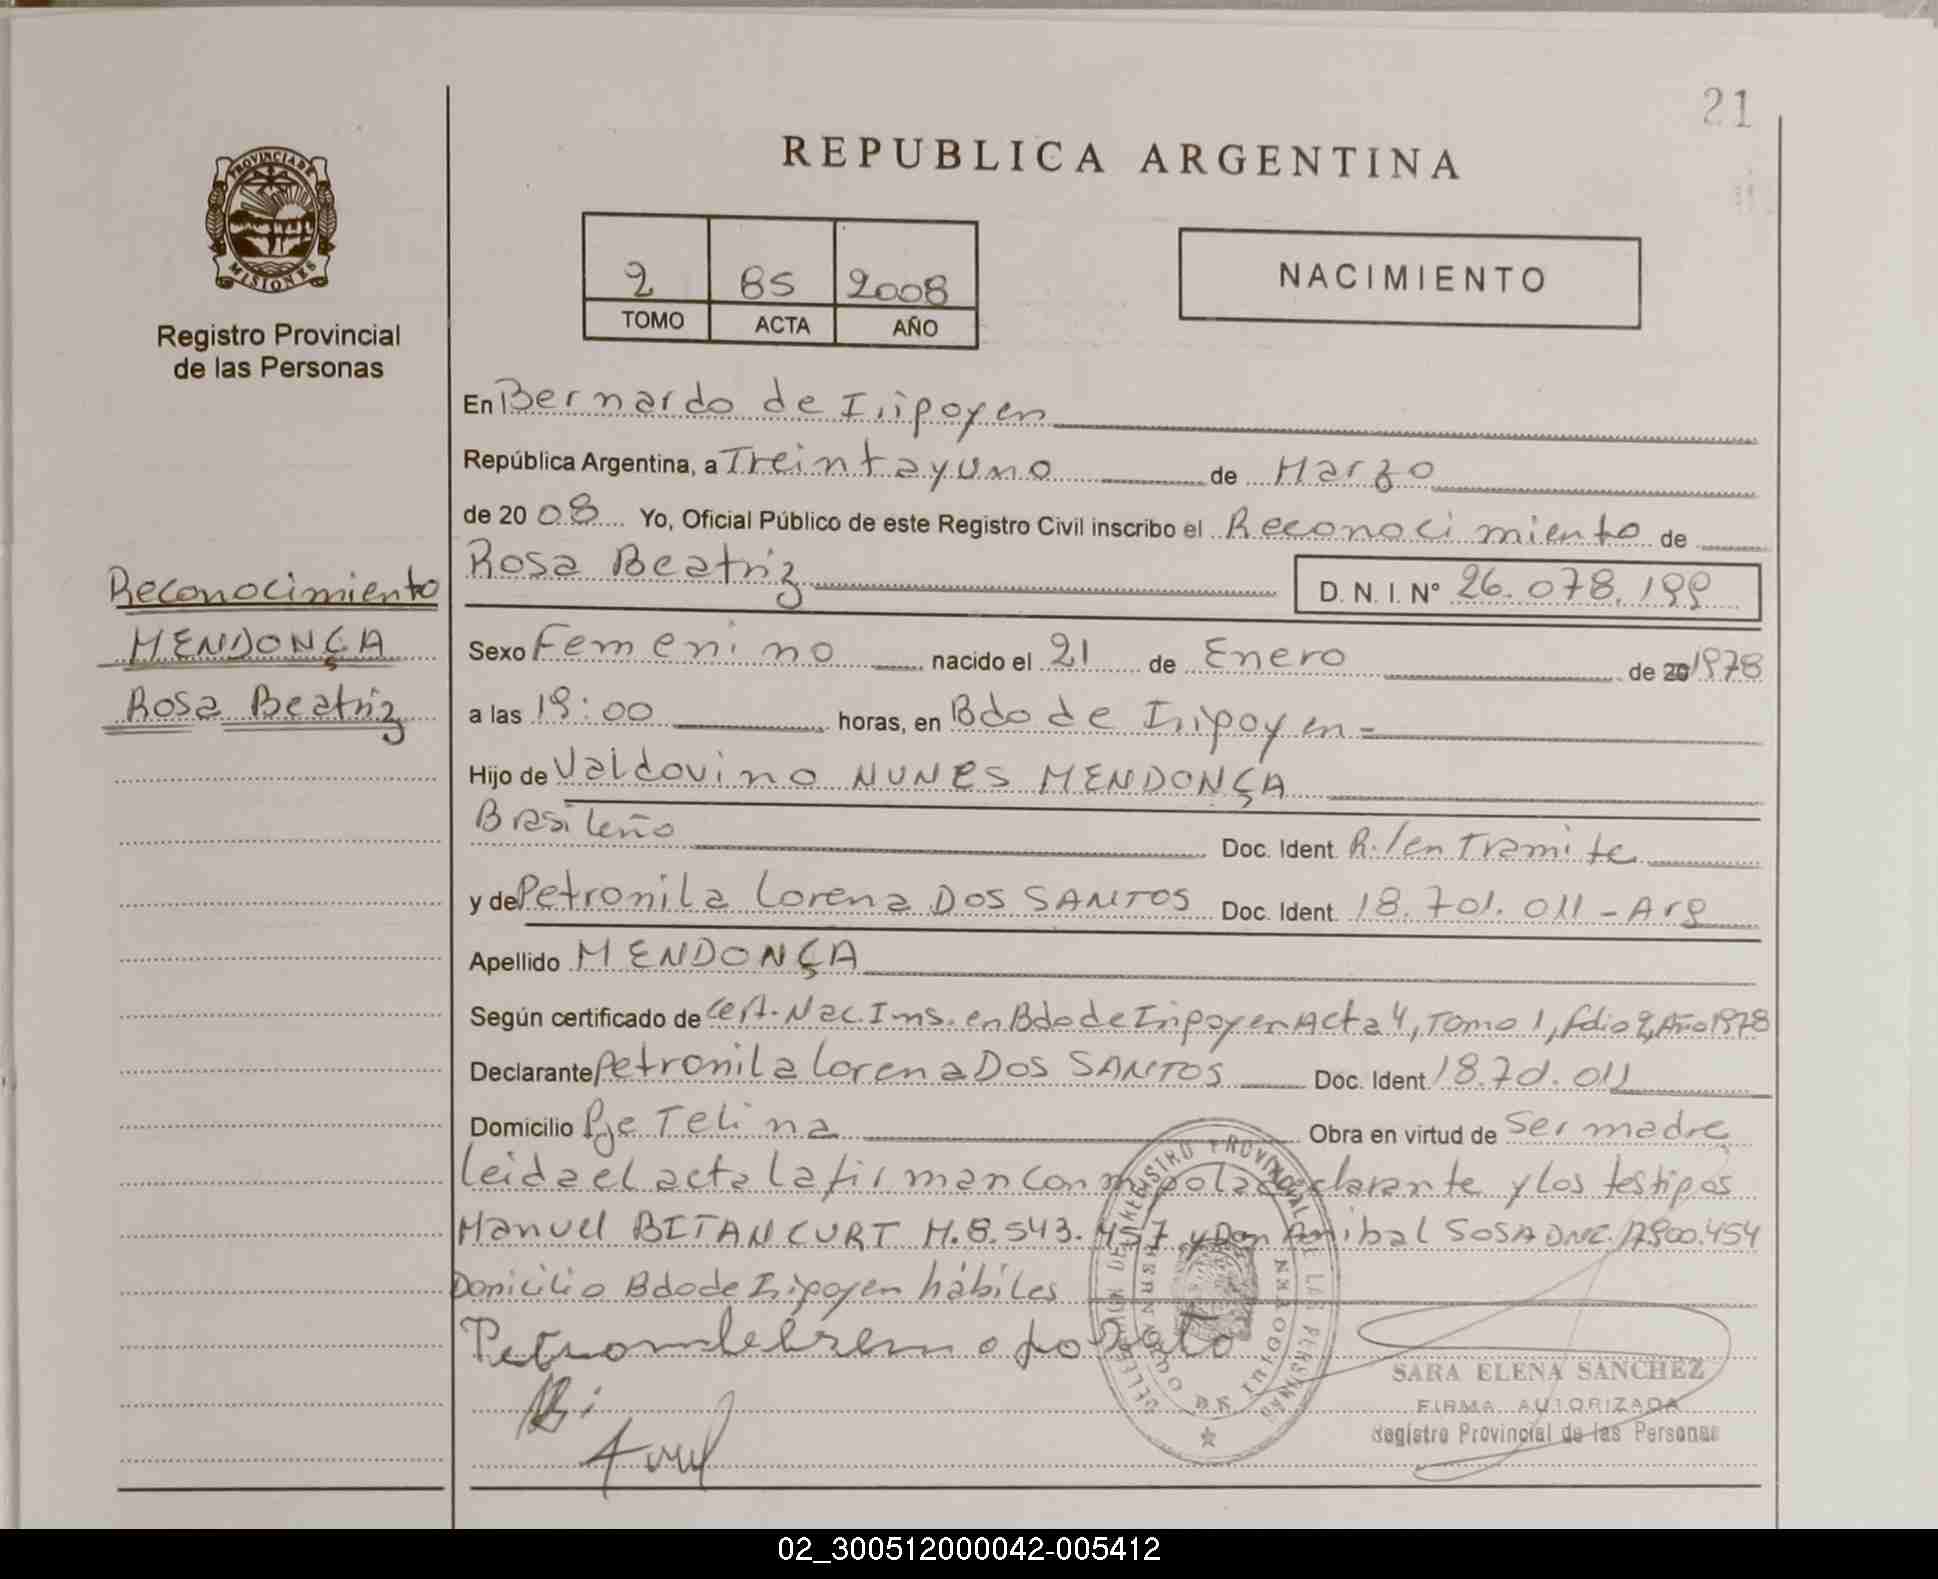 21
PROVINCIA DE
MISIONES
Registro Provincial
de las Personas
REPUBLICA ARGENTINA
2 85 2008
TOMO ACTA AÑO
NACIMIENTO
En Bernardo de Irigoyen
República Argentina, a Treinta y uno de Marzo
de 20 08 Yo, Oficial Público de este Registro Civil inscribo el Reconocimiento de
Rosa Beatriz D. N. I. N° 26.078.199
Reconocimiento
MENDONÇA
Rosa Beatriz
Sexo Femenino nacido el 21 de Enero de 20 1978
a las 19:00 horas, en Bdo de Irigoyen =
Hijo de Valdovino NUNES MENDONÇA
Brasileño Doc. Ident. R./en Tramite
y de Petronila Lorena DOS SANTOS Doc. Ident. 18.701.011 - Arg
Apellido MENDONÇA
Según certificado de Cert. Nac. Ins. en Bdo de Irigoyen Acta 4, Tomo 1, folio 2, Año 1978
Declarante Petronila Lorena DOS SANTOS Doc. Ident. 18.701.011
Domicilio Pje Telina Obra en virtud de Ser madre
leida el acta la firman conmigo la declarante y los testigos
Manuel BITANCURT M. 8.543.457 y Don Anibal SOSA DNI. 17.800.454
Domicilio Bdo de Irigoyen hábiles
SARA ELENA SANCHEZ
FIRMA AUTORIZADA
Registro Provincial de las Personas
02_300512000042-005412